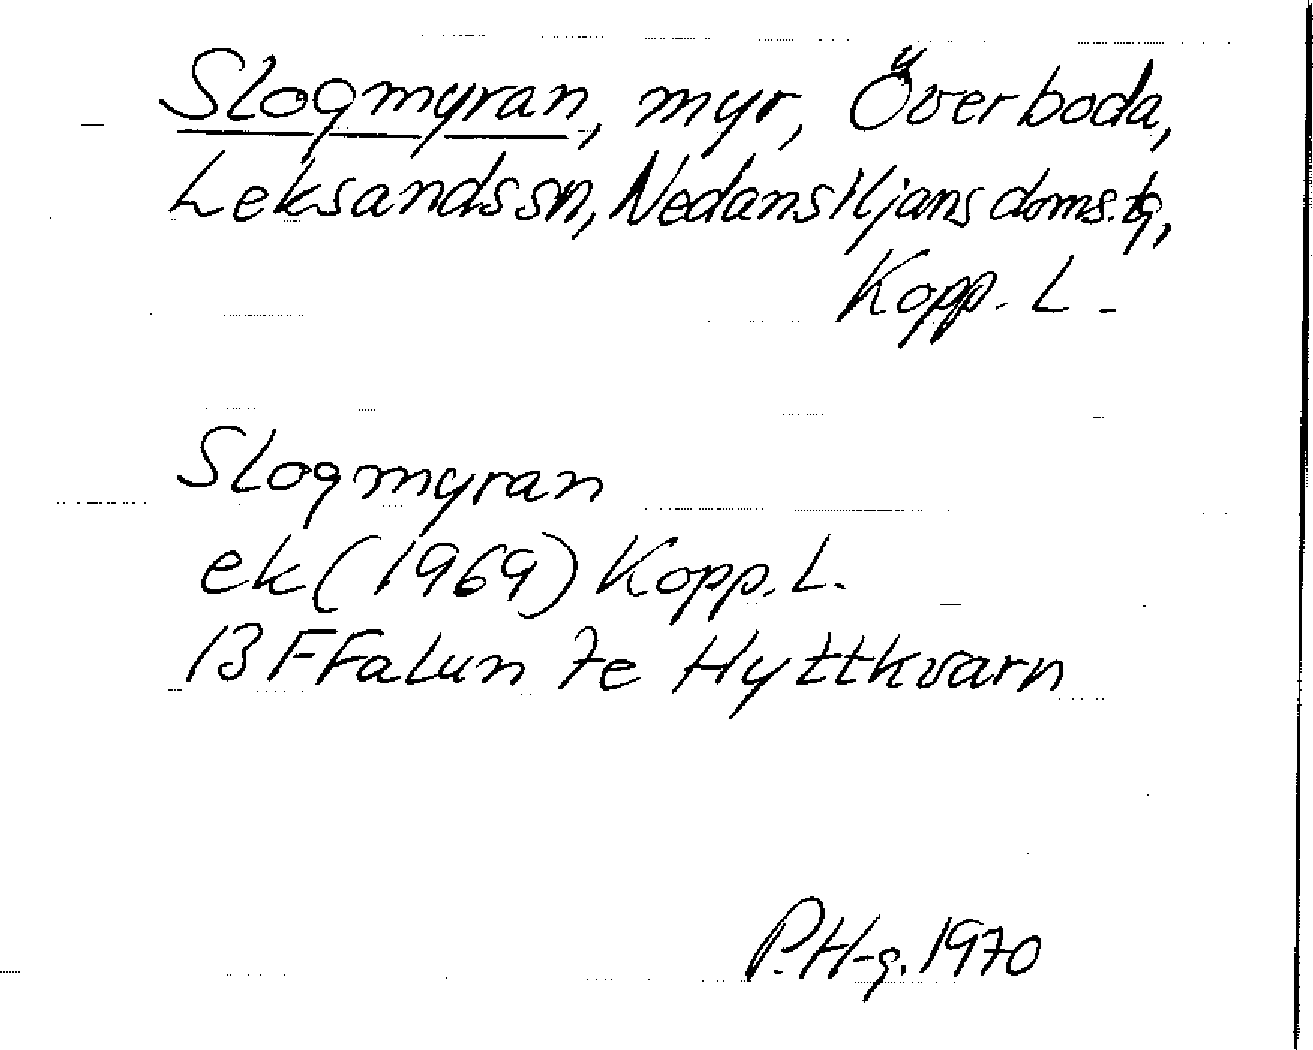 Slogmyran, myr, Överboda,
Leksands sn, Nedansiljans doms.tg,
Kopp. L.
Slogmyran
ek (1969) Kopp. L.
13 F Falun 7e Hyttkvarn
P.H-g. 1970